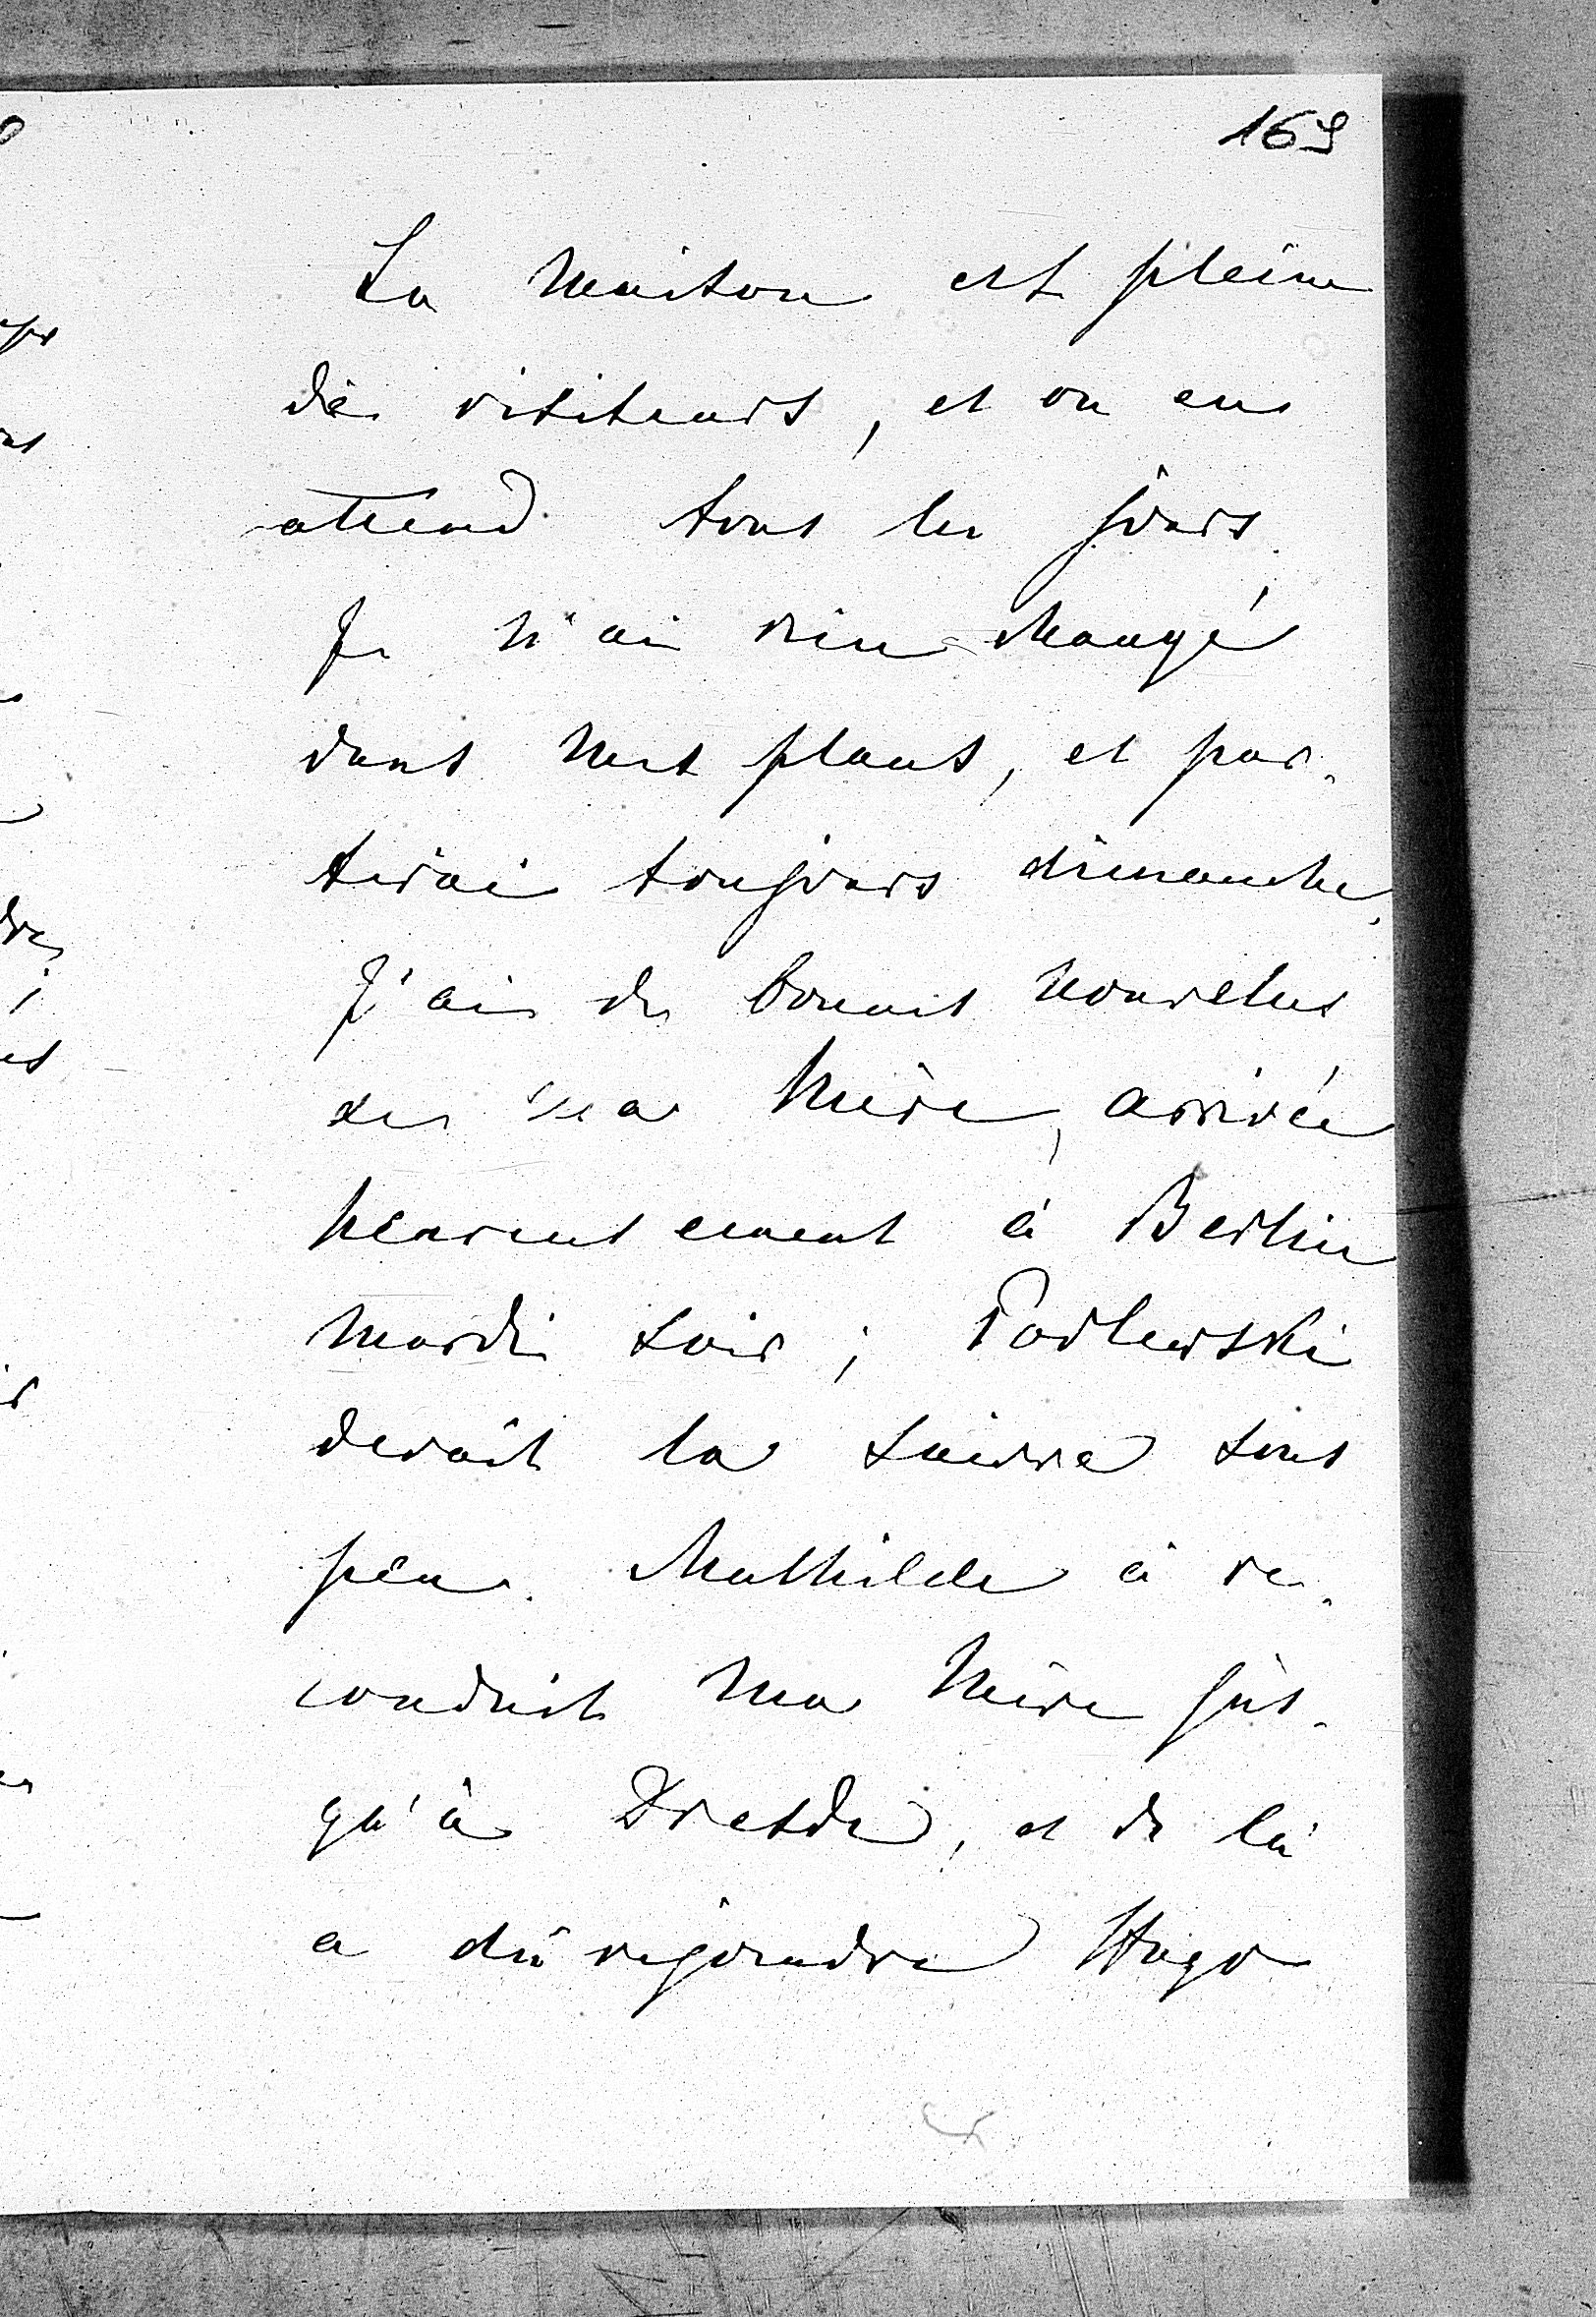 169
La maison est pleine
de visiteurs, et on en
attend tous les jours.
Je n'ai rien changé
dans mes plans, et par-
tirai toujours dimanche.
J'ai de bonnes nouvelles
de ma Mère, arrivée
heureusement à Berlin
mardi soir; Podlewski
devait la suivre sous
peu. Mathilde a re-
conduit ma Mère jus-
qu'à Dresde, et de là
a dû rejoindre Hugo